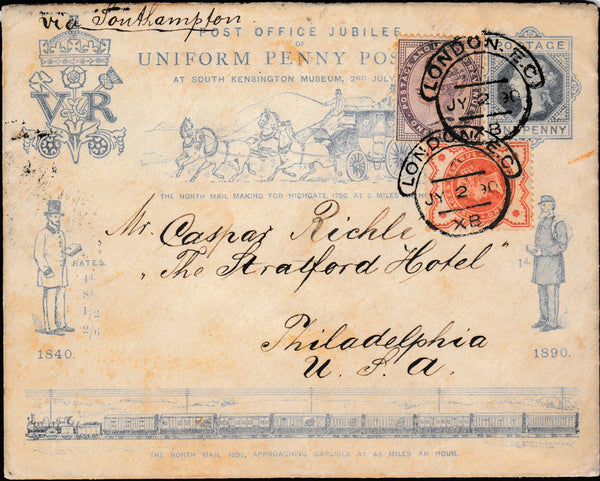 via Southampton.
POST OFFICE JUBILEE
OF
UNIFORM PENNY POS
AT SOUTH KENSINGTON MUSEUM, 2ND JULY
V R
POSTAGE
NE PENNY
POSTAGE AND
LONDON. E.C.
JY 2 90
XB
LONDON. E.C.
JY 2 90
XB
THE NORTH MAIL MAKING FOR HIGHGATE 1790, AT 8 MILES
Mr. Caspar Richle
"The Stratford Hotel"
Philadelphia
U. S. A.
RATES.
4d.
8d.
1/2
2/6
1d.
1840.
1890.
THE NORTH MAIL 1890, APPROACHING CARLISLE AT 48 MILES AN HOUR.